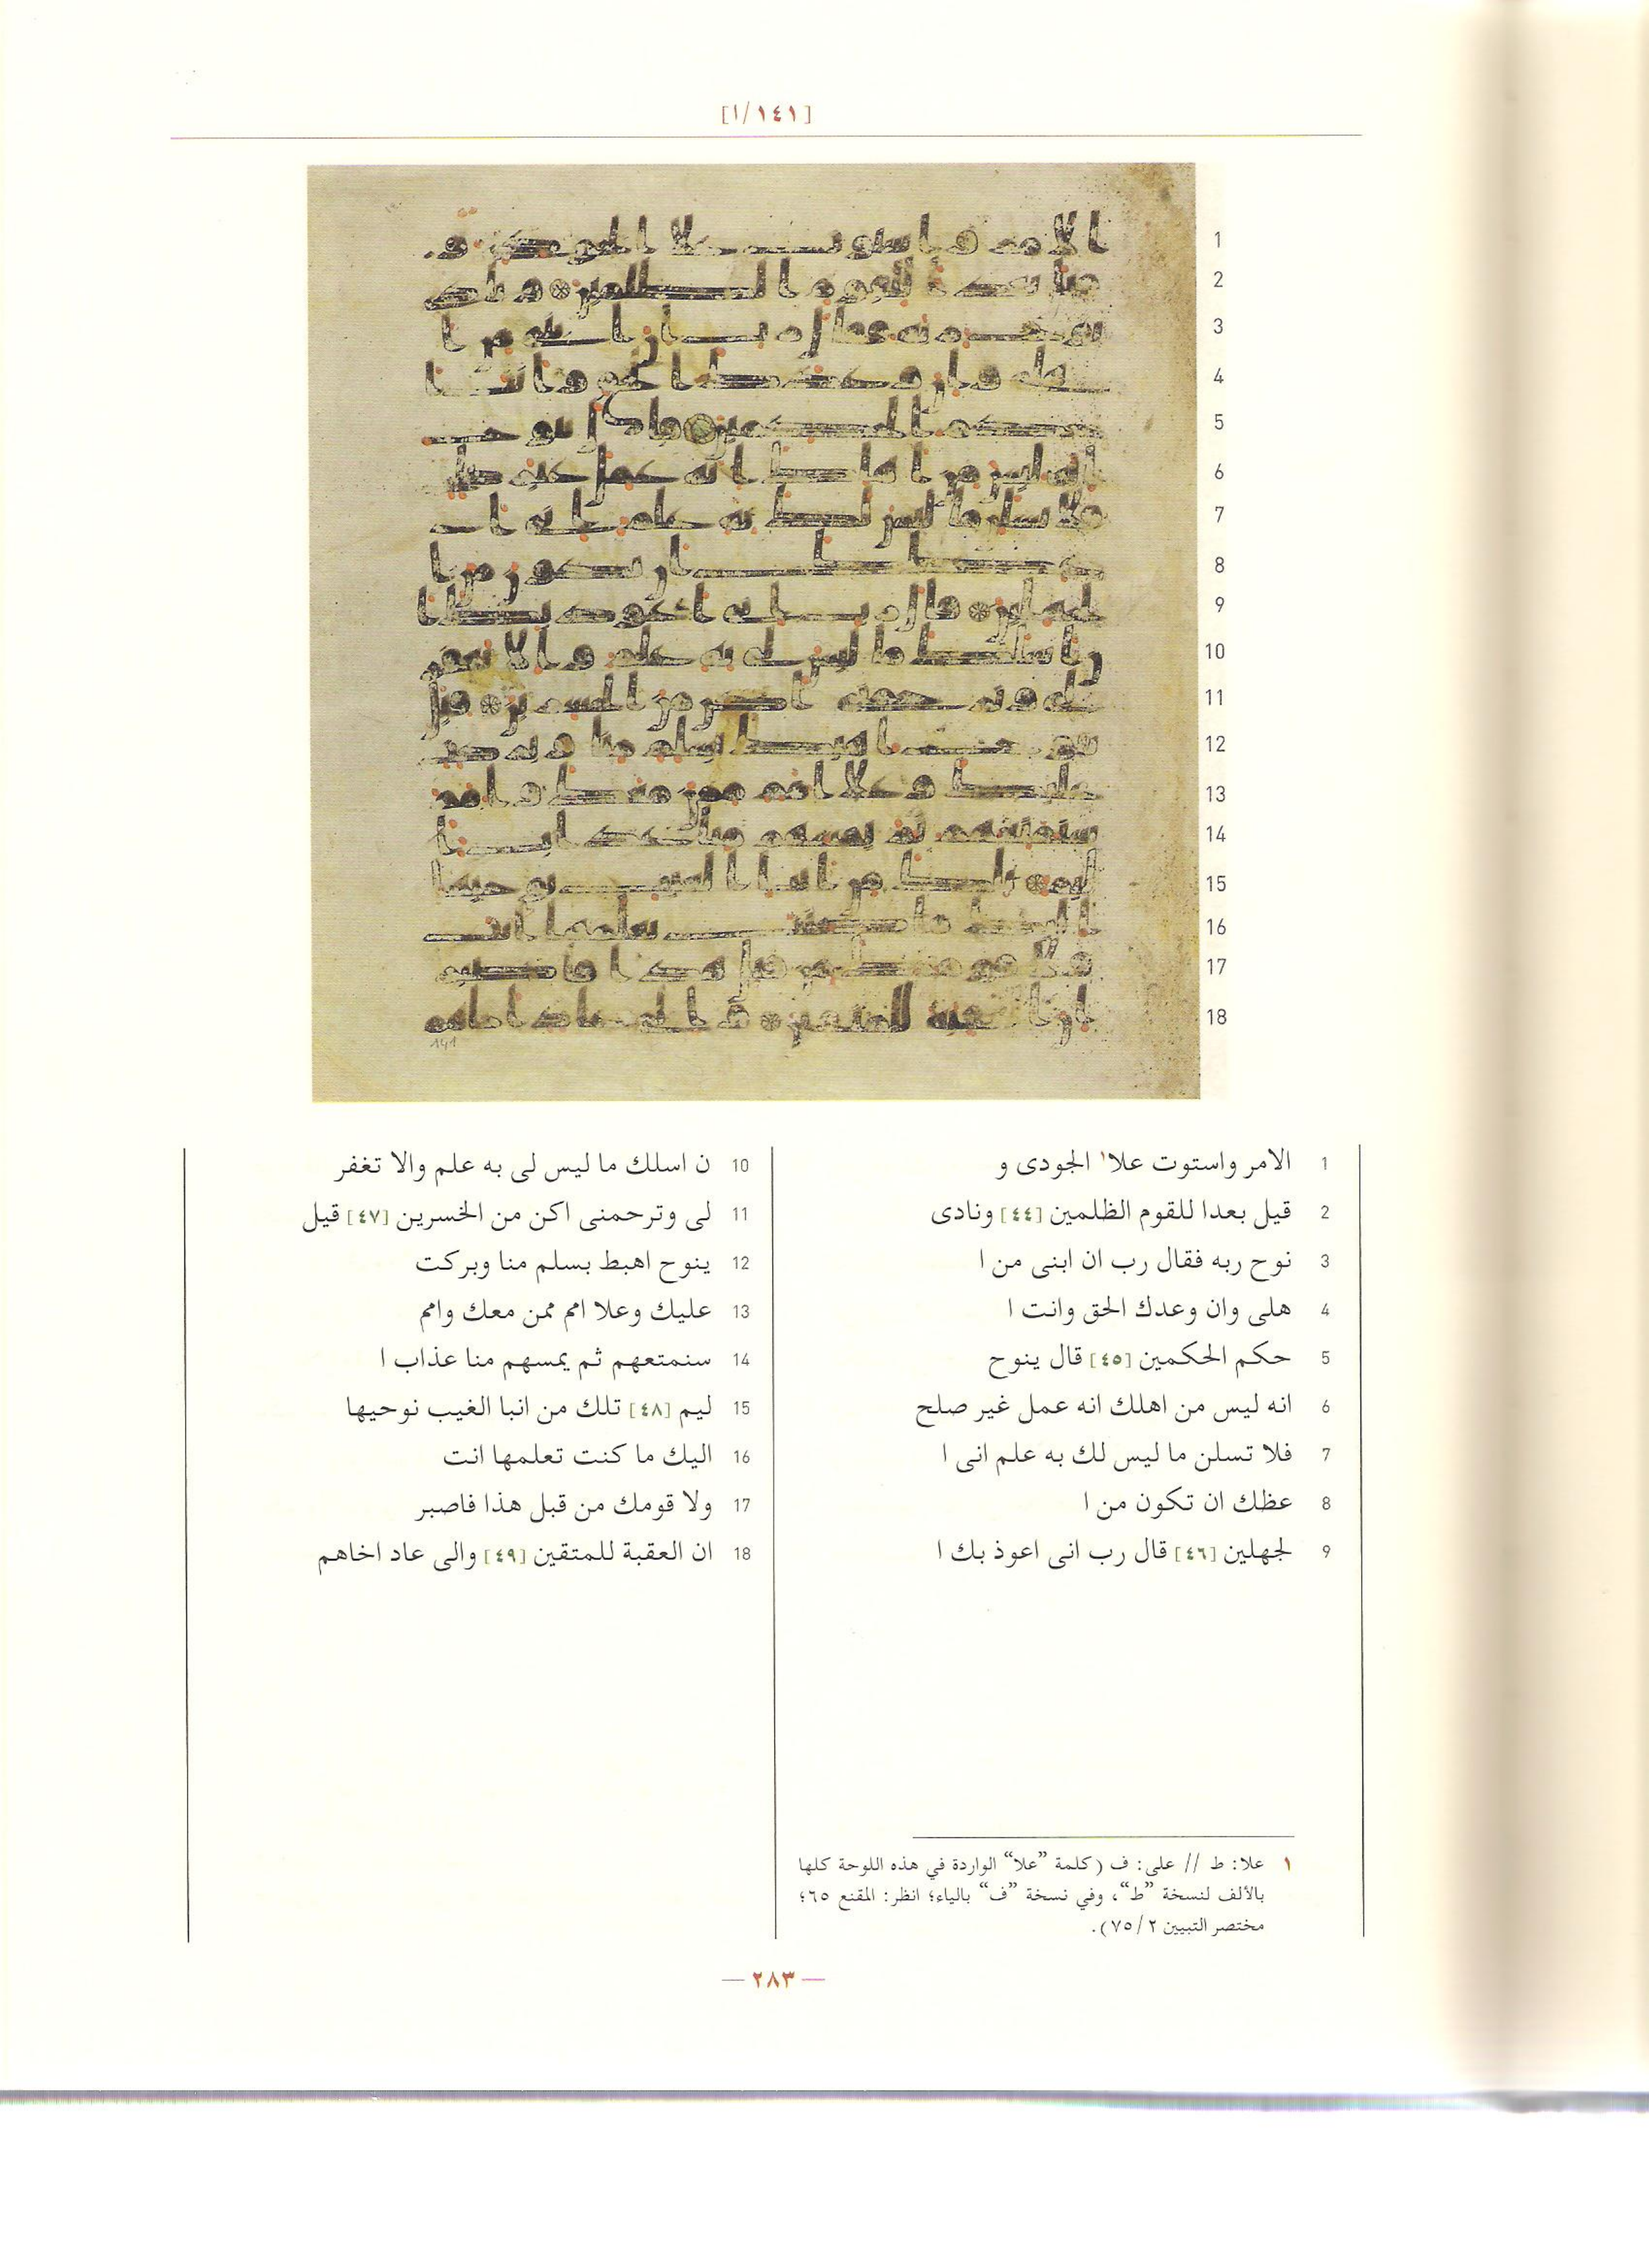 [١٤١/ا]
1
2
3
4
5
6
7
8
9
10
11
12
13
14
15
16
17
18
141
1 الامر واستوت علا١ الجودى و
2 قيل بعدا للقوم الظلمين [٤٤] ونادى
3 نوح ربه فقال رب ان ابنى من ا
4 هلى وان وعدك الحق وانت ا
5 حكم الحكمين [٤٥] قال ينوح
6 انه ليس من اهلك انه عمل غير صلح
7 فلا تسلن ما ليس لك به علم انى ا
8 عظك ان تكون من ا
9 لجهلين [٤٦] قال رب انى اعوذ بك ا
10 ن اسلك ما ليس لى به علم والا تغفر
11 لى وترحمنى اكن من الخسرين [٤٧] قيل
12 ينوح اهبط بسلم منا وبركت
13 عليك وعلا امم ممن معك وامم
14 سنمتعهم ثم يمسهم منا عذاب ا
15 ليم [٤٨] تلك من انبا الغيب نوحيها
16 اليك ما كنت تعلمها انت
17 ولا قومك من قبل هذا فاصبر
18 ان العقبة للمتقين [٤٩] والى عاد اخاهم
١ علا: ط // على: ف (كلمة ”علا“ الواردة في هذه اللوحة كلها
بالألف لنسخة ”ط“، وفي نسخة ”ف“ بالياء؛ انظر: المقنع ٦٥؛
مختصر التبيين ٧٥/٢).
— ٢٨٣ —